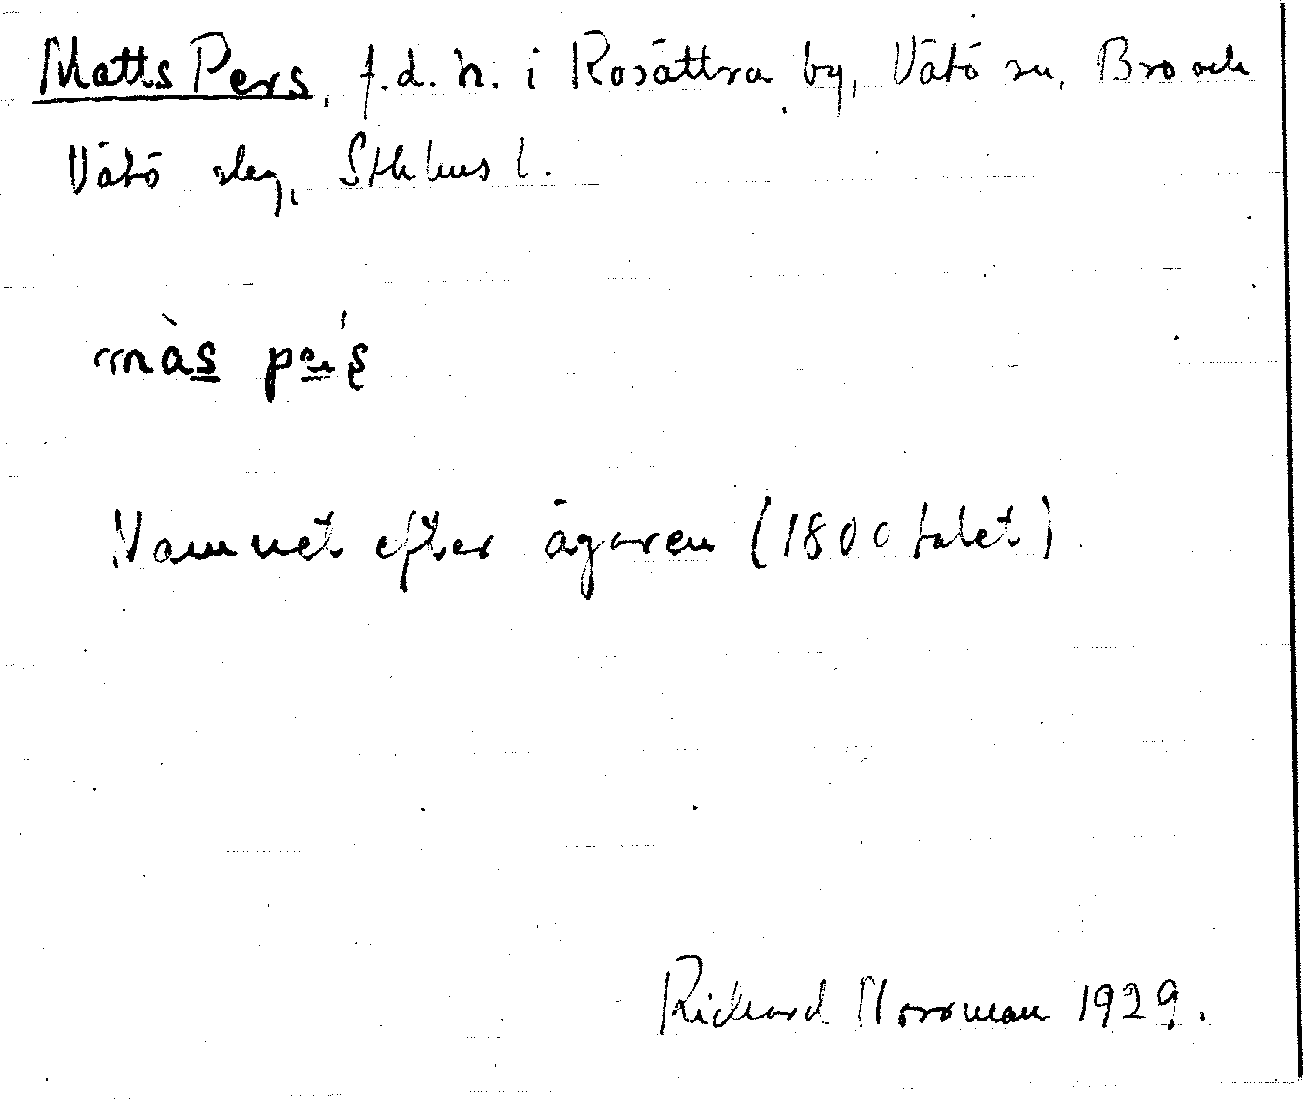 Matts Pers, f.d. h. i Rosättra by, Vätö sn, Bro och
Vätö slg, Sthlms l.
màs pæ̀ʂ
Namnet efter ägaren (1800 talet).
Richard Norrman 1929.